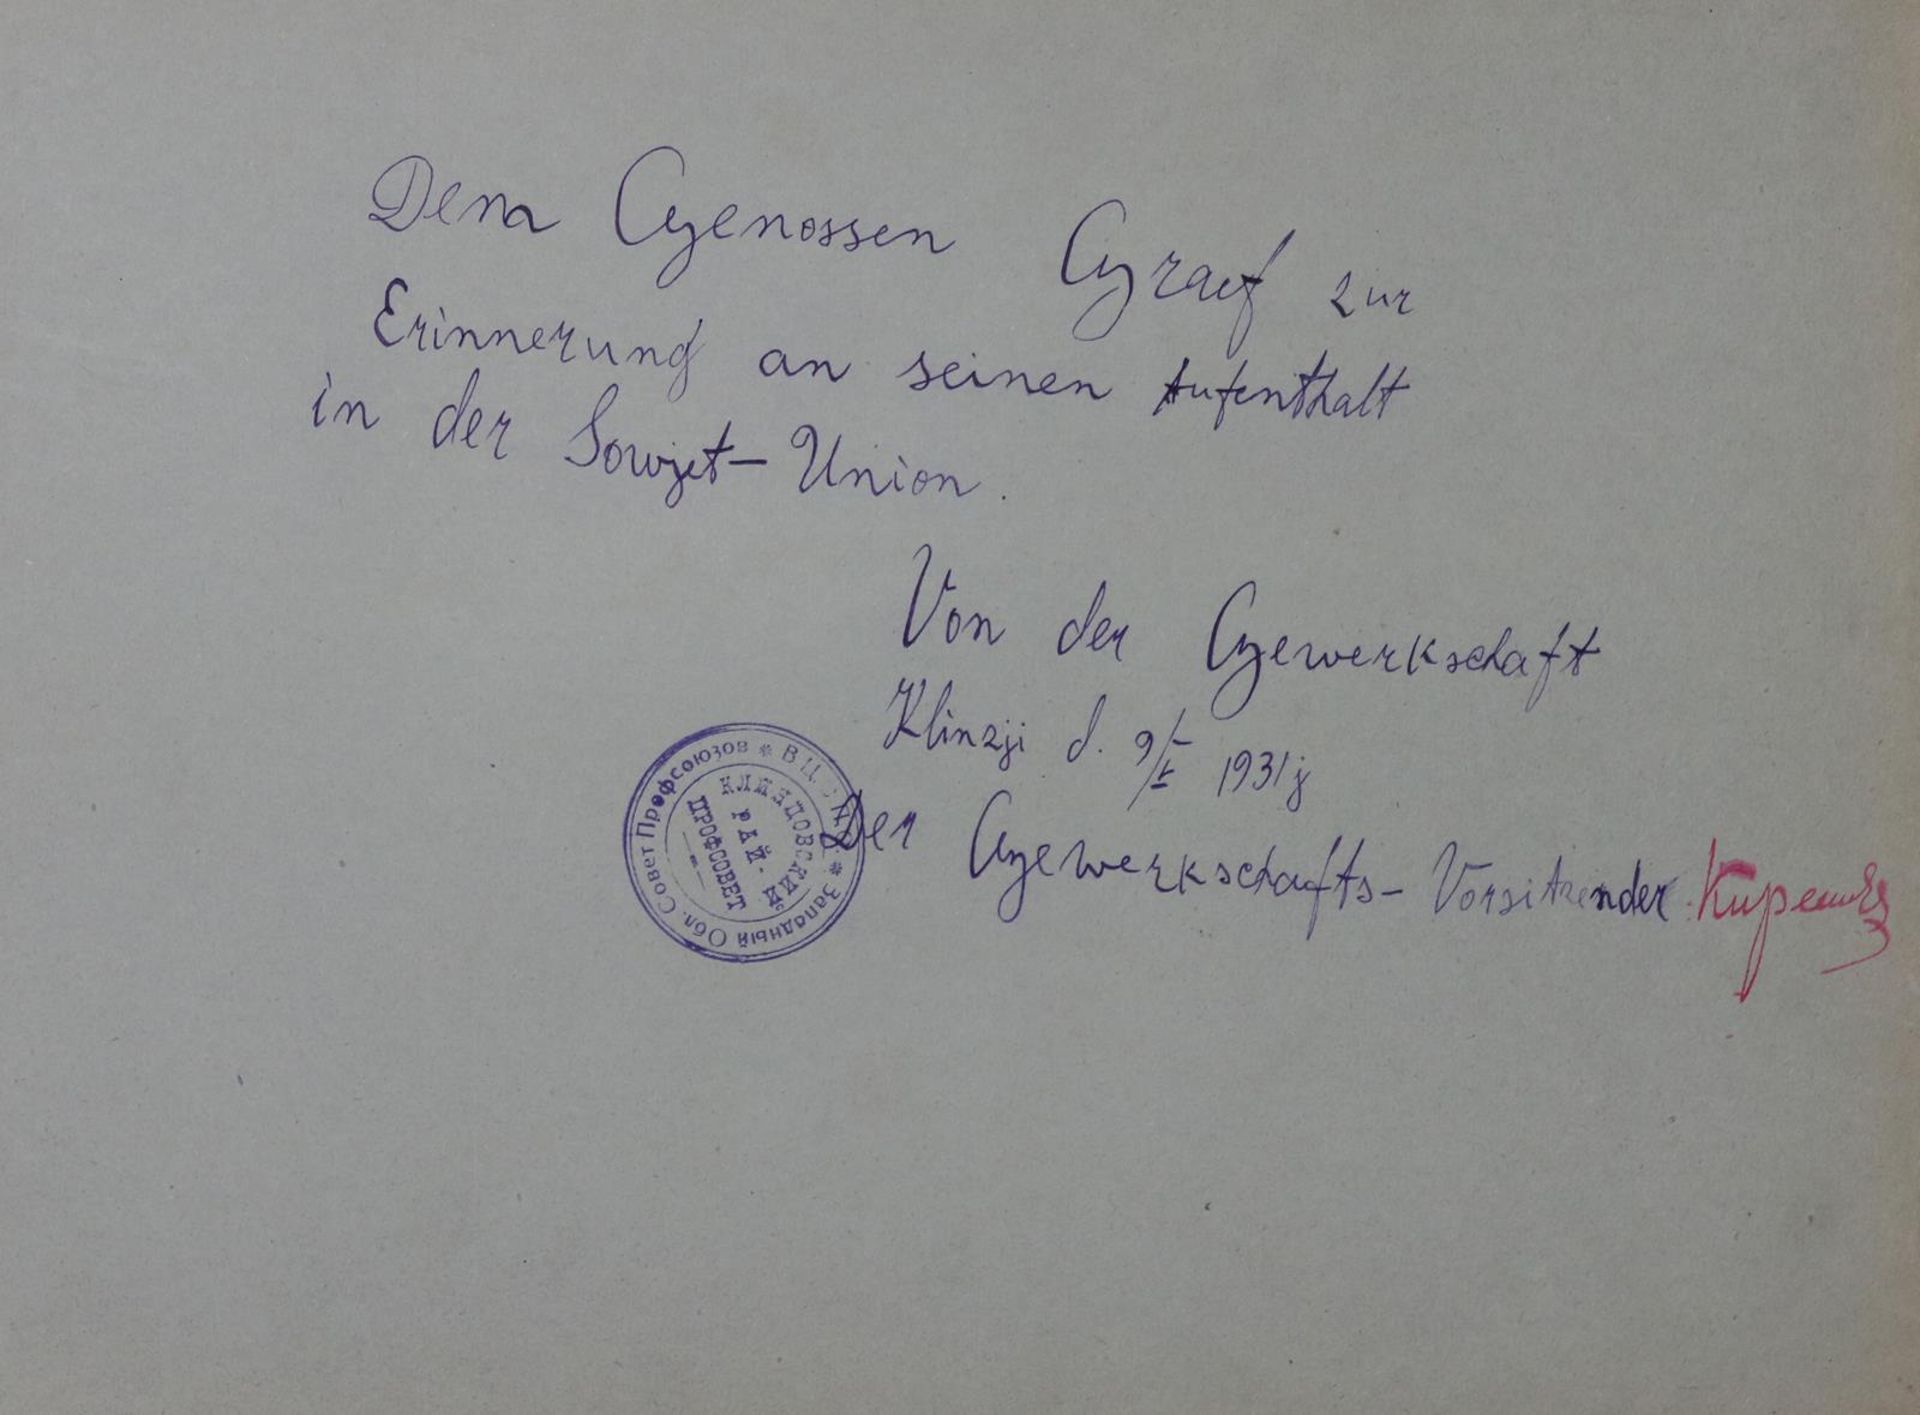 Dem Genossen Graef zur
Erinnerung an seinen Aufenthalt
in der Sowjet-Union.
Von der Gewerkschaft
Klinzji d. 9/V 1931j
Der Gewerkschafts-Vorsitzender
Западный Обл. Совет Профсоюзов * В.Ц.С.П.С. *
КЛИНЦОВСКИЙ
РАЙ.
ПРОФСОВЕТ